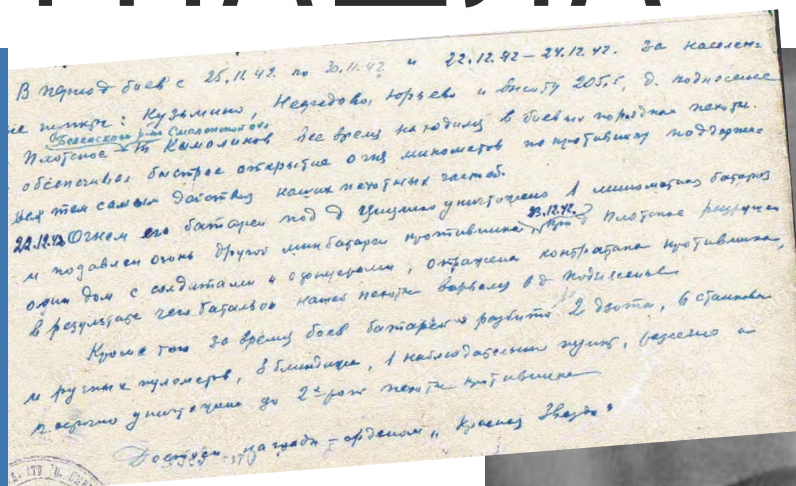 НАШЛА
В период боев с 25.11.42 по 30.11.42 и 22.12.42 – 24.12.42. За населен-
ые пункты: Кузьмино, Нефедово, Юрьево и высоту 205,5, д. Подносенье
Бельского р-на Смоленской обл
Плотское все время находился в боевых порядках пехоты.
обеспечивая быстрое открытие огня минометов по противнику поддержи-
вая тем самым действия наших пехотных частей.
22.12.42 Огнем его батареи под д уничтожена 1 минометная батарея
23.12.42
и подавлен огонь другой минбатареи противника. При д Плотское разрушен
один дом с солдатами и офицерами, отражена контратака противника,
в результате чего батальон нашей пехоты ворвался в д Подносенье
Кроме того за время боев батареей разбито 2 дзота, 6 станковых
и ручных пулеметов, 8 блиндажа, 1 наблюдательный пункт, рассеяно и
частично уничтожено до 2х рот пехоты противника
Достоин награды – орденом „Красная Звезда"